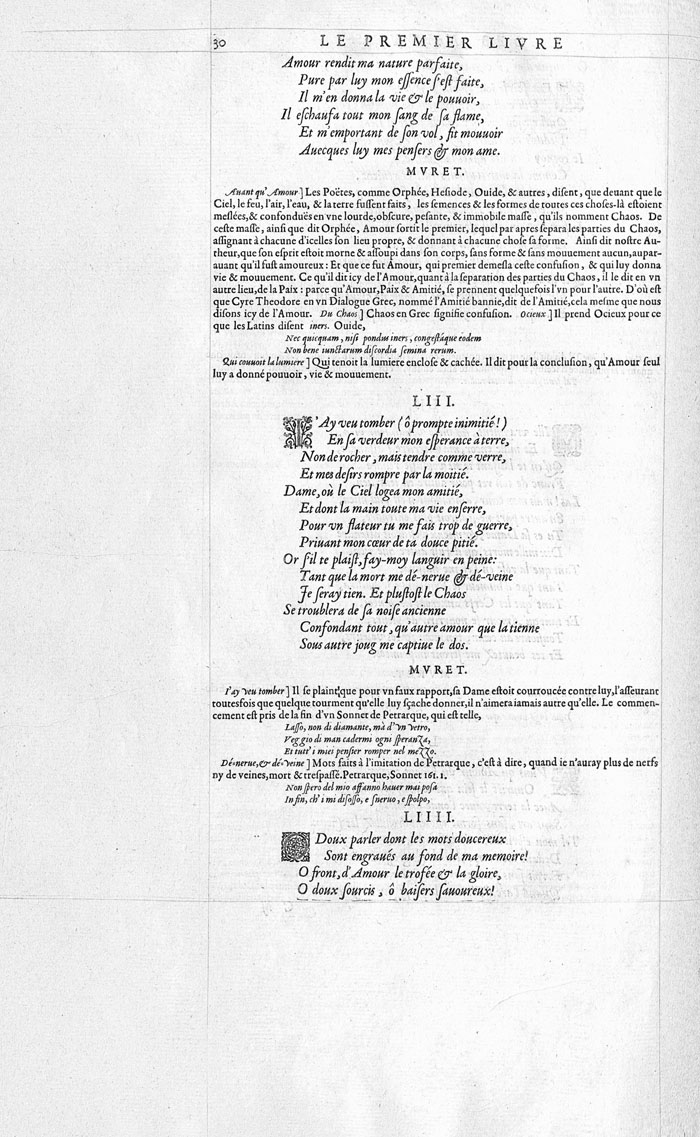 30 LE PREMIER LIVRE
Amour rendit ma nature parfaite,
Pure par luy mon essence s'est faite,
Il m'en donna la vie & le pouuoir,
Il eschaufa tout mon sang de sa flame,
Et m'emportant de son vol, fit mouuoir
Auecques luy mes pensers & mon ame.
MVRET.
Auant qu'Amour] Les Poëtes, comme Orphée, Hesiode, Ouide, & autres, disent, que deuant que le
Ciel, le feu, l'air, l'eau, & la terre fussent faits, les semences & les formes de toutes ces choses-là estoient
meslées, & confonduës en vne lourde, obscure, pesante, & immobile masse, qu'ils nomment Chaos. De
ceste masse, ainsi que dit Orphée, Amour sortit le premier, lequel par apres separa les parties du Chaos,
assignant à chacune d'icelles son lieu propre, & donnant à chacune chose sa forme. Ainsi dit nostre Au-
theur, que son esprit estoit morne & assoupi dans son corps, sans forme & sans mouuement aucun, aupar-
auant qu'il fust amoureux: Et que ce fut Amour, qui premier demesla ceste confusion, & qui luy donna
vie & mouuement. Ce qu'il dit icy de l'Amour, quant à la separation des parties du Chaos, il le dit en vn
autre lieu, de la Paix: parce qu'Amour, Paix & Amitié, se prennent quelquefois l'vn pour l'autre. D'où est
que Cyre Theodore en vn Dialogue Grec, nommé l'Amitié bannie, dit de l'Amitié, cela mesme que nous
disons icy de l'Amour. Du Chaos] Chaos en Grec signifie confusion. Ocieux] Il prend Ocieux pour ce
que les Latins disent iners. Ouide,
Nec quicquam, nisi pondus iners, congestáque eodem
Non bene iunctarum discordia semina rerum.
Qui couuoit la lumiere] Qui tenoit la lumiere enclose & cachée. Il dit pour la conclusion, qu'Amour seul
luy a donné pouuoir, vie & mouuement.
LIII.
I'Ay veu tomber (ô prompte inimitié!)
En sa verdeur mon esperance à terre,
Non de rocher, mais tendre comme verre,
Et mes desirs rompre par la moitié.
Dame, où le Ciel logea mon amitié,
Et dont la main toute ma vie enserre,
Pour vn flateur tu me fais trop de guerre,
Priuant mon cœur de ta douce pitié.
Or s'il te plaist, fay-moy languir en peine:
Tant que la mort me dé-nerue & dé-veine
Je seray tien. Et plustost le Chaos
Se troublera de sa noise ancienne
Confondant tout, qu'autre amour que la tienne
Sous autre joug me captiue le dos.
MVRET.
I'ay veu tomber] Il se plaint, que pour vn faux rapport, sa Dame estoit courroucée contre luy, l'asseurant
toutesfois que quelque tourment qu'elle luy sçache donner, il n'aimera iamais autre qu'elle. Le commen-
cement est pris de la fin d'vn Sonnet de Petrarque, qui est telle,
Lasso, non di diamante, mà d'vn vetro,
Veggio di man cadermi ogni speranza,
Et tutt' i miei pensier romper nel mezzo.
Dé-nerue, & dé-veine] Mots faits à l'imitation de Petrarque, c'est à dire, quand ie n'auray plus de nerfs
ny de veines, mort & trespassé. Petrarque, Sonnet 161.1.
Non spero del mio affanno hauer mai posa
Infin, ch'i mi disosso, e sneruo, e spolpo,
LIIII.
O Doux parler dont les mots doucereux
Sont engraués au fond de ma memoire!
O front, d'Amour le trofée & la gloire,
O doux sourcis, ô baisers sauoureux!